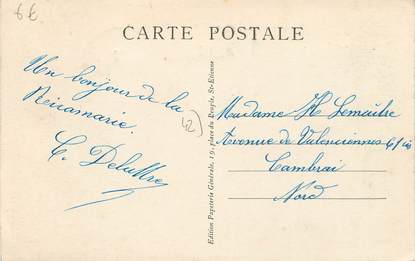 6€
CARTE POSTALE
Un bonjour de la
Ricamarie.
C. Delattre
42)
Edition Papeterie Générale, 19, place du Peuple, St-Etienne
Madame H Lemaître
Avenue de Valenciennes
Cambrai
Nord